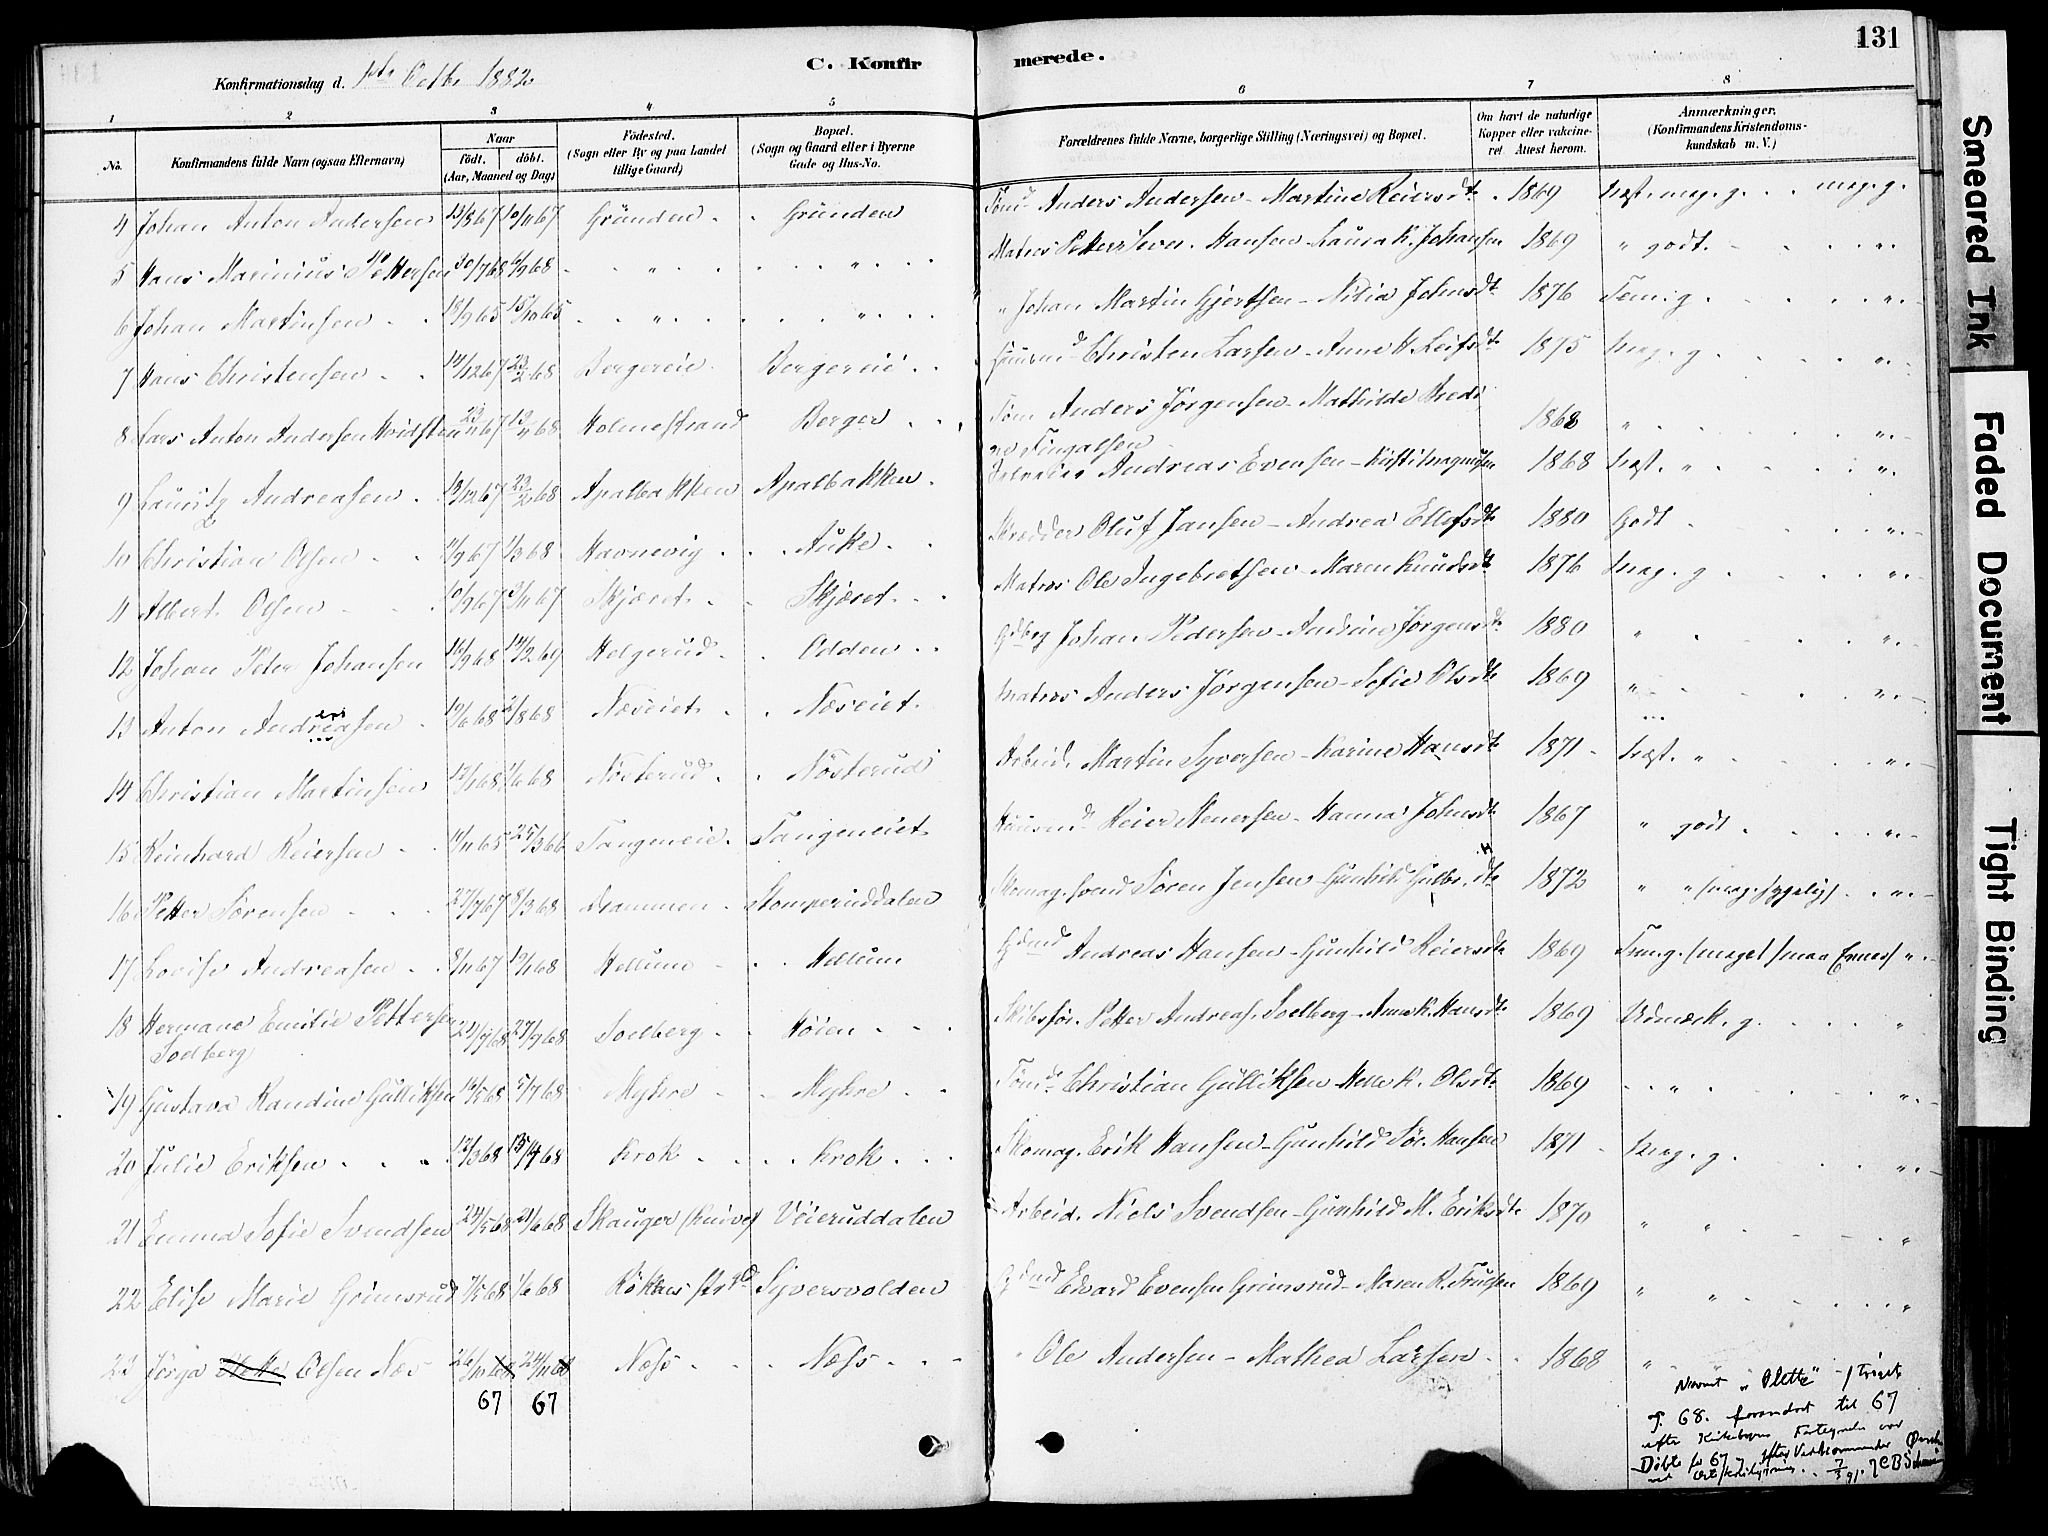 131
C. Konfirmerede.
Konfirmationsdag d. 1ste Octbr 1882.
1 2 3 4 5 6 7 8
No. Konfirmandens fulde Navn (ogsaa Efternavn) Naar født. døbt. (Aar, Maaned og Dag) Fødested. (Sogn eller By og paa Landet tillige Gaard) Bopæl. (Sogn og Gaard eller i Byerne Gade og Hus-No. Forældrenes fulde Navne, borgerlige Stilling (Næringsvei) og Bopæl. Om havt de naturlige Kopper eller vakcineret. Attest herom. Anmærkninger. (Konfirmandens Kristendomskundskab m. V.)
4 Johan Anton Andersen 13/8 67 10/11 67 Gründen Gründen Tømd Anders Andersen - Martine Reiersdt. 1869 Næst. meg. g. meg. g.
5 Hans Marinius Pettersen 30/7 68 6/9 68 " " Matros Petter Iver Hansen - Laura K. Johansen 1869 " godt. "
6 Johan Martinsen 18/9 65 15/10 65 " " " Johan Martin Gjertsen - Nilia Johnsdt. 1876 Tem: g. "
7 Hans Christensen 14/12 67 23/2 68 Bergereie Bergereie Huusmd Christen Larsen - Anne H. Leifsdt. 1875 Meg. g. "
8 Lars Anton Andersen Hvidsten 23/11 67 Holmestrand Berger Tøm Anders Jørgensen - Mathilde Fredi Fingalsen 1868 " "
9 Lauritz Andreasen 13/12 67 23/2 68 Apalbakken Apalbakken Andreas Evensen - Kirsti Magnusen 1868 Næst. " "
10 Christian Olsen 11/9 67 1/3 68 Havnevig Auke Skrædder Oluf Jansen - Andrea Ellefsdt. 1880 Godt "
11 Albert Olsen 10/9 67 3/11 67 Skjæret Skjæret Matros Ole Ingebretsen - Maren Knudsdt. 1876 Meg. g. "
12 Johan Peter Johansen 16/9 68 14/2 69 Holgerud Odden Gdbrg Johan Pedersen - Andrine Jørgensdt. 1880 " "
13 Anton Andreasen 10/6 68 2/8 68 Næseiet Næseiet Matros Anders Jørgensen - Sofie Olsdt. 1869 " "
14 Christian Martinsen 12/1 68 1/6 68 Nøsterud Nøsterud Arbeid. Martin Syversen - Karine Hansdt. 1871 Næst. " "
15 Reinhard Reiersen 11/11 65 25/3 66 Tangeneie Tangeneiet Huusmd Reier Menersen - Hanna Johnsdt. 1867 " godt. "
16 Petter Sørensen 27/7 67 8/3 68 Drammen Stomperuddalen Skomag. svend Søren Jensen - Gunhild Gulbr.dt. 1872 " " (meg. sygelig) "
17 Lovise Andreasen 8/11 67 19/1 68 Hellum Hellum Gdmd Andreas Hansen - Gunhild Reiersdt. 1869 Temg. (meget smaa Evner) "
18 Hermane Emilie Pettersen Solberg 22/7 68 27/9 68 Solberg Høien Skibsfør. Petter Andreas. Solberg - Anne K. Hansdt. 1869 Udmærk. g. "
19 Gustava Randine Gulliksen 16/5 68 5/7 68 Myhre Myhre Tømd. Christian Gulliksen - Helle K. Olsdt. 1869 " "
20 Julie Eriksen 12/3 68 13/4 68 Krok Krok Skomag. Erik Hansen - Gunhild Sør. Hansen 1871 Meg. g. "
21 Emma Sofie Svendsen 24/5 68 21/6 68 Skauger (Knive) Veieruddalen Arbeid. Niels Svendsen - Gunhild M. Eriksdt. 1870 " " "
22 Elise Marie Grimsrud 7/5 68 1/6 68 Syversvolden Gdmd Edvard Evensen Grimsrud - Maren K. Trulsen 1869 " " "
23 Jørga Olette Olsen Næs 26/10 68 24/11 68 Næss Næss " Ole Andersen - Mathea Larsen 1868 " "
67 67
Navnet "Olette" - strøget
J. 68. forandret til 67
efter Kirkebogens
Døbte for 67
7/3 91.
Smeared Ink
Faded Document
Tight Binding